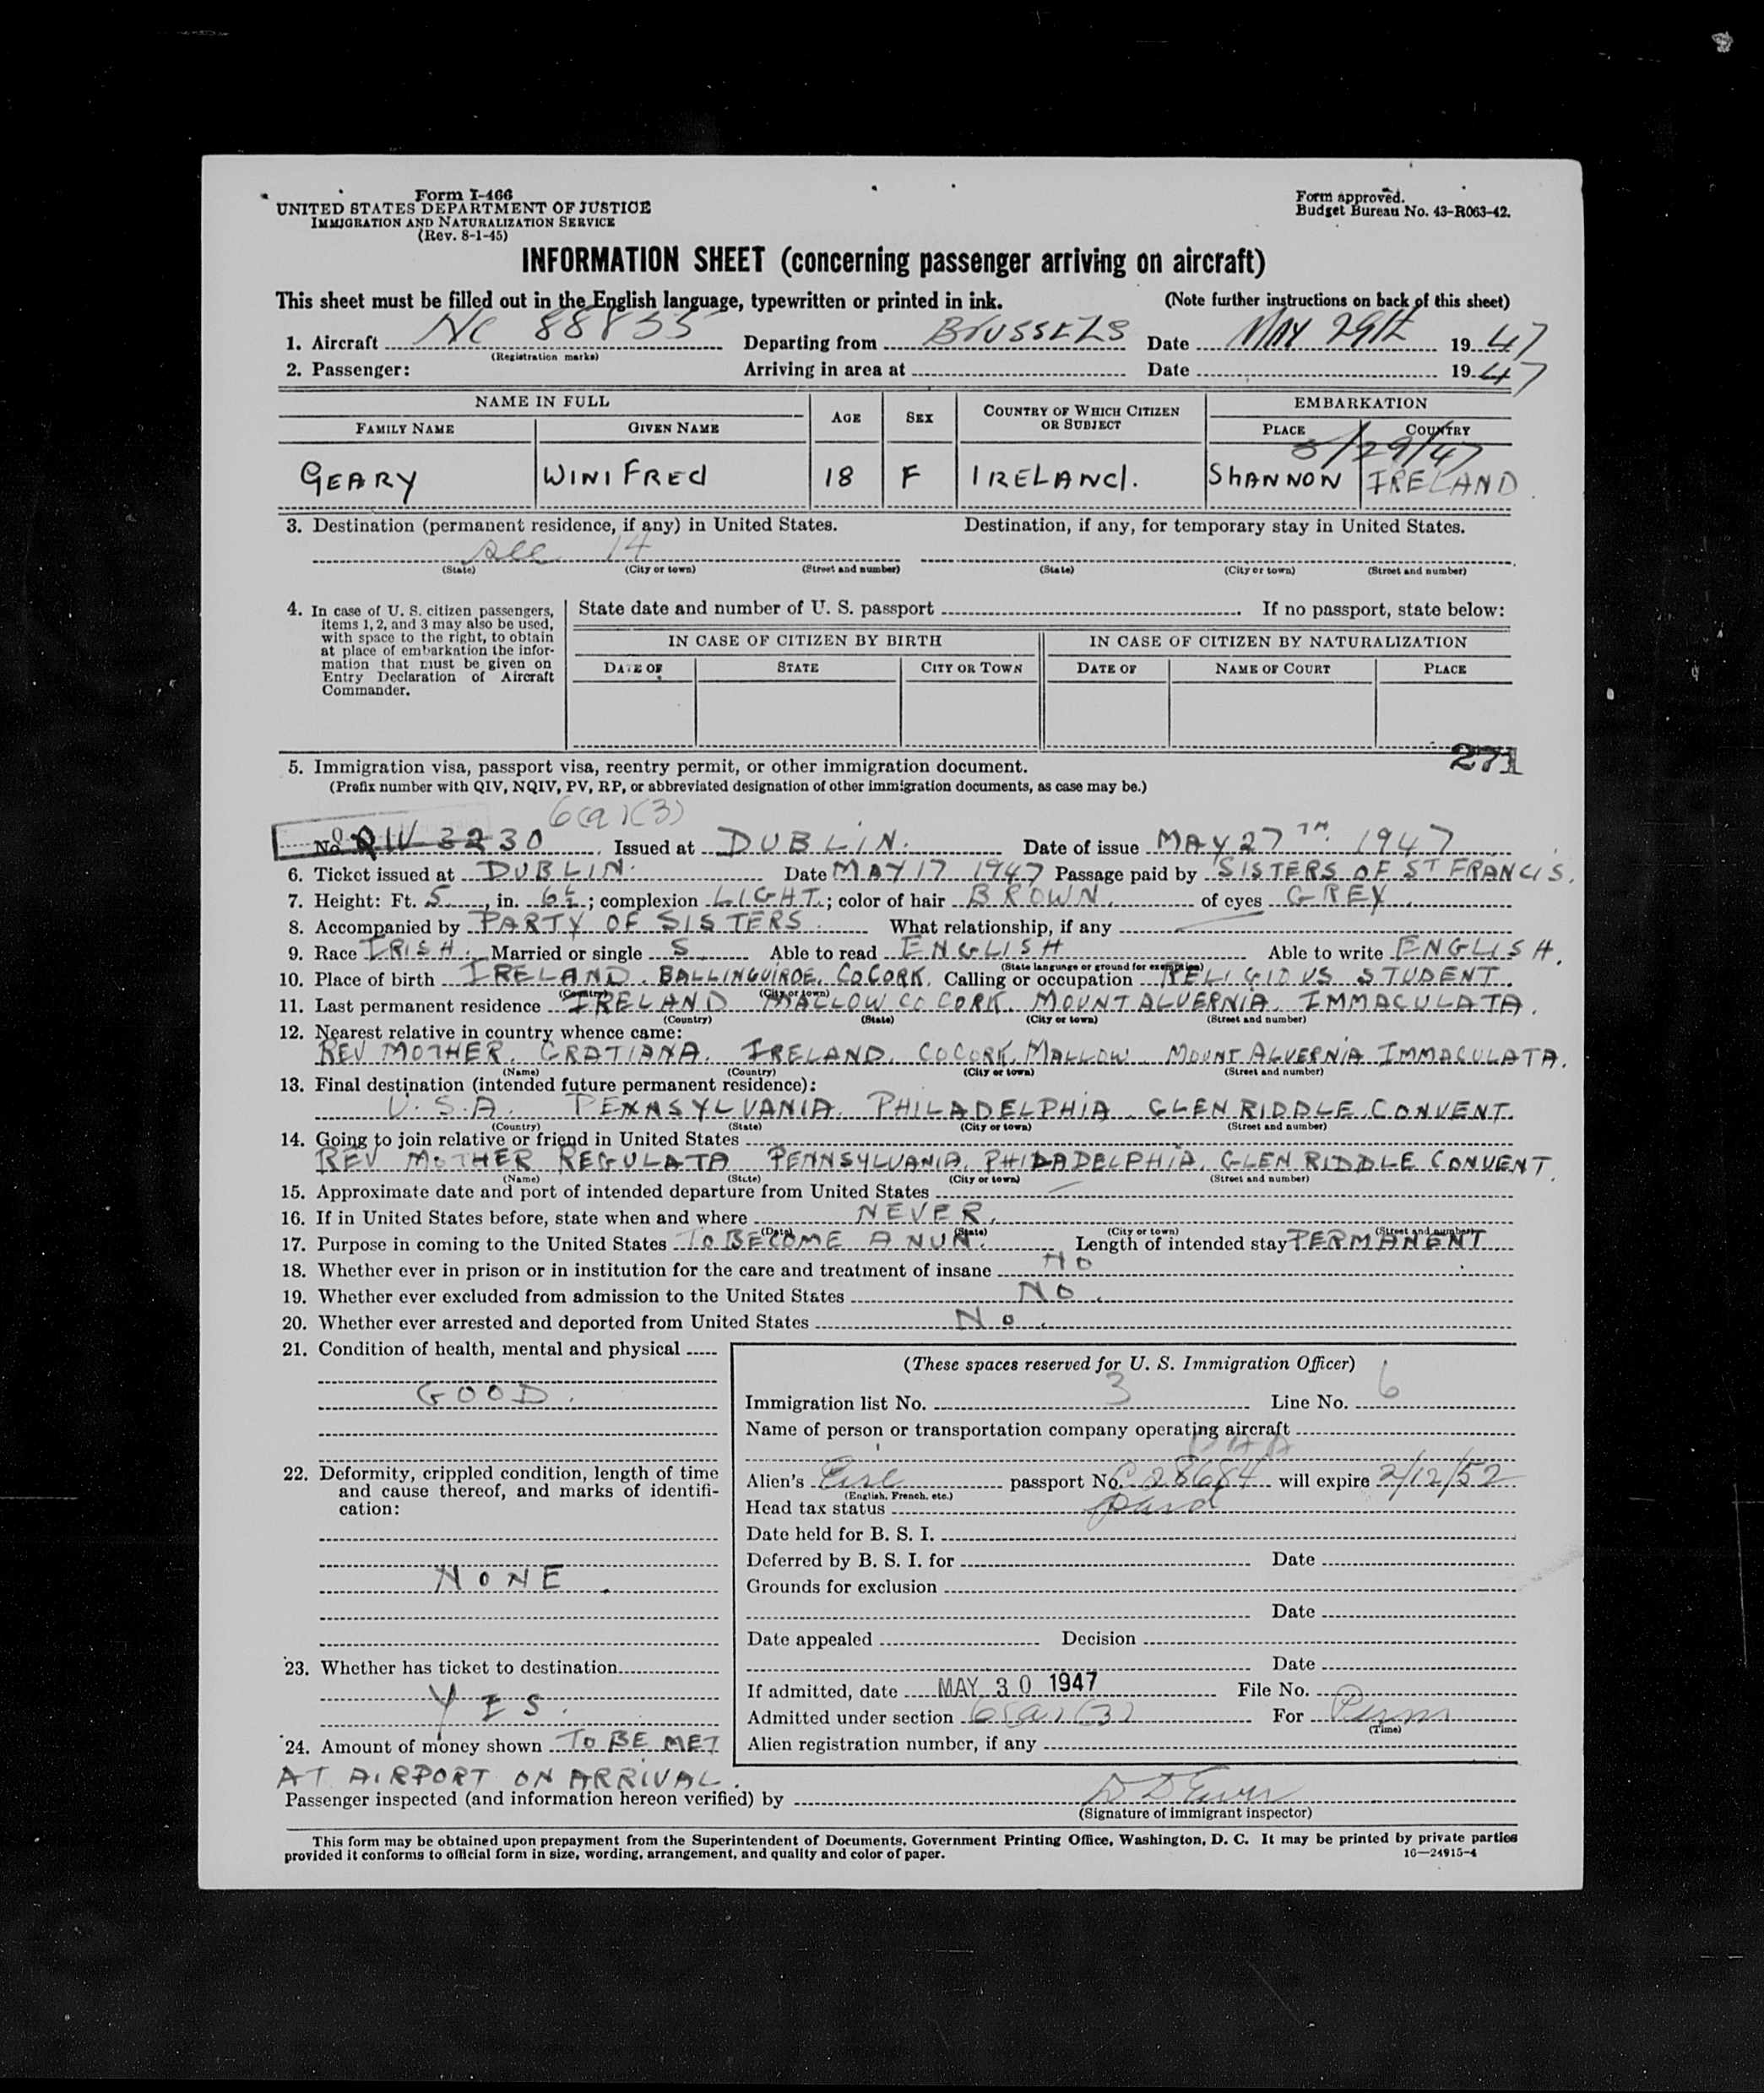 Form I-466
UNITED STATES DEPARTMENT OF JUSTICE
IMMIGRATION AND NATURALIZATION SERVICE
(Rev. 8-1-45)
Form approved.
Budget Bureau No. 43-R063-42.
INFORMATION SHEET (concerning passenger arriving on aircraft)
This sheet must be filled out in the English language, typewritten or printed in ink. (Note further instructions on back of this sheet)
1. Aircraft NC 88855 Departing from BrUSSELS Date MAY 29th 1947
(Registration marks)
2. Passenger: Arriving in area at Date 1947
NAME IN FULL AGE SEX COUNTRY OF WHICH CITIZEN OR SUBJECT EMBARKATION
FAMILY NAME GIVEN NAME PLACE COUNTRY
5/29/47
GEARY WINIFREd 18 F IRELANd. ShANNON IRELAND.
3. Destination (permanent residence, if any) in United States. Destination, if any, for temporary stay in United States.
see 14
(State) (City or town) (Street and number) (State) (City or town) (Street and number)
4. In case of U. S. citizen passengers, items 1, 2, and 3 may also be used, with space to the right, to obtain at place of embarkation the information that must be given on Entry Declaration of Aircraft Commander.
State date and number of U. S. passport If no passport, state below:
IN CASE OF CITIZEN BY BIRTH IN CASE OF CITIZEN BY NATURALIZATION
DATE OF STATE CITY OR TOWN DATE OF NAME OF COURT PLACE
271
5. Immigration visa, passport visa, reentry permit, or other immigration document.
(Prefix number with QIV, NQIV, PV, RP, or abbreviated designation of other immigration documents, as case may be.)
6(a)(3)
No. QIV 3230 Issued at DUBLIN. Date of issue MAY 27TH 1947
6. Ticket issued at DUBLIN. Date MAY 17 1947 Passage paid by SISTERS OF ST FRANCIS.
7. Height: Ft. 5, in. 6½; complexion LIGHT.; color of hair BROWN. of eyes GREY.
8. Accompanied by PARTY OF SISTERS. What relationship, if any
9. Race IRISH. Married or single S. Able to read ENGLISH Able to write ENGLISH.
(State language or ground for exemption)
10. Place of birth IRELAND. BALLINGUIROE. CO CORK. Calling or occupation RELIGIOUS STUDENT.
(Country) (City or town)
11. Last permanent residence IRELAND MALLOW CO CORK MOUNT ALVERNIA. IMMACULATA.
(Country) (State) (City or town) (Street and number)
12. Nearest relative in country whence came:
REV MOTHER. GRATIANA. IRELAND. CO CORK. MALLOW MOUNT ALVERNIA IMMACULATA.
(Name) (Country) (City or town) (Street and number)
13. Final destination (intended future permanent residence):
U.S.A. PENNSYLVANIA. PHILADELPHIA. GLEN RIDDLE CONVENT.
(Country) (State) (City or town) (Street and number)
14. Going to join relative or friend in United States
REV MOTHER REGULATA PENNSYLVANIA. PHILADELPHIA. GLEN RIDDLE CONVENT.
(Name) (State) (City or town) (Street and number)
15. Approximate date and port of intended departure from United States
16. If in United States before, state when and where NEVER.
(Date) (State) (City or town) (Street and number)
17. Purpose in coming to the United States TO BECOME A NUN. Length of intended stay PERMANENT
18. Whether ever in prison or in institution for the care and treatment of insane NO
19. Whether ever excluded from admission to the United States NO.
20. Whether ever arrested and deported from United States No.
21. Condition of health, mental and physical
GOOD.
22. Deformity, crippled condition, length of time and cause thereof, and marks of identification:
NONE.
23. Whether has ticket to destination
YES.
24. Amount of money shown TO BE MET
AT AIRPORT ON ARRIVAL.
(These spaces reserved for U. S. Immigration Officer)
Immigration list No. 3 Line No. 6
Name of person or transportation company operating aircraft
PAA
Alien's Eire passport No. C 28684 will expire 2/12/52
(English, French, etc.)
Head tax status paid
Date held for B. S. I.
Deferred by B. S. I. for Date
Grounds for exclusion
Date
Date appealed Decision
Date
If admitted, date MAY 30 1947 File No.
Admitted under section 6(a)(3) For Perm
(Time)
Alien registration number, if any
Passenger inspected (and information hereon verified) by
(Signature of immigrant inspector)
This form may be obtained upon prepayment from the Superintendent of Documents, Government Printing Office, Washington, D. C. It may be printed by private parties
provided it conforms to official form in size, wording, arrangement, and quality and color of paper. 16—24915-4